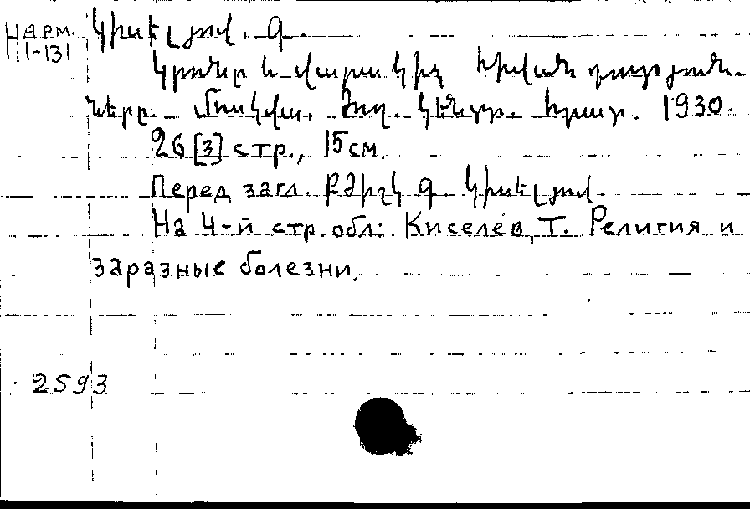 Н арм.
11-131
Կիսելյով. Գ.
Կրոնը և վարակիչ հիվանդություն-
ները. Մոսկվա, Ժող. Կենտր. հրատ. 1930.
26 [3] стр., 15 см.
Перед загл. Բժիշկ Գ. Կիսելյով.
На 4-й стр. обл: Киселев, Т. Религия и
заразные болезни.
2593